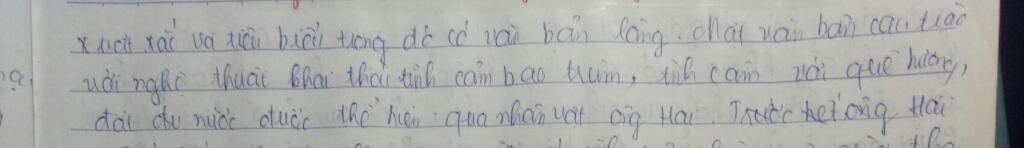 xuất xắc và tiêu biểu trong đó có văn bản làng. Một văn bản cao trào
với nghệ thuật khai thái tình cảm bao trùm, tình cảm với quê hương,
đất nước được thể hiện qua nhân vật ông Hai. Trước hết ông Hai